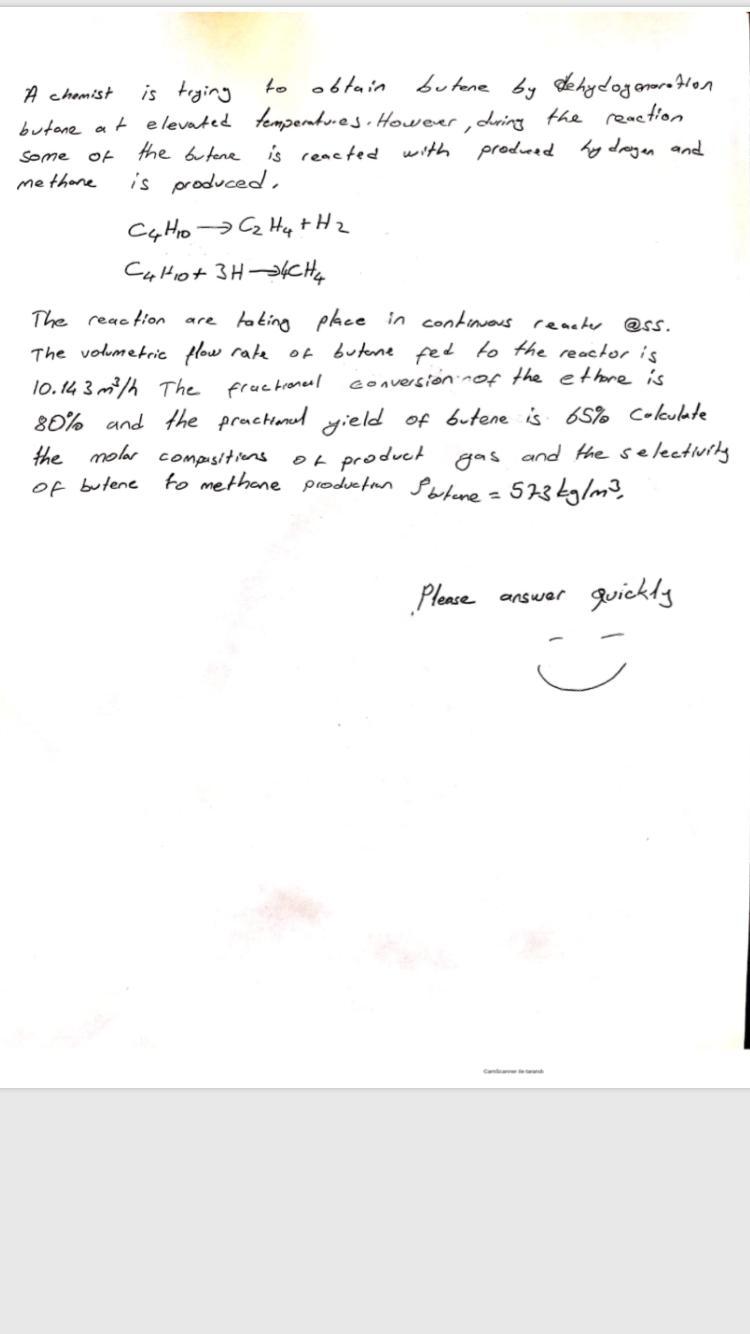 A chemist is trying to obtain butene by dehydogenaration
butane at elevated temperatures. However, during the reaction
some of the butene is reacted with produced hydrogen and
methane is produced.
C4H10 → C2H4 + H2
C4H10 + 3H → 4CH4
The reaction are taking place in continuous reacter @ss.
The volumetric flow rate of butane fed to the reactor is
10.143 m³/h The fractional conversion of the ethane is
80% and the practional yield of butene is 65% Calculate
the molar compositions of product gas and the selectivity
of butene to methane production ρbutane = 573 kg/m³.
Please answer quickly
CamScanner ile tarandı